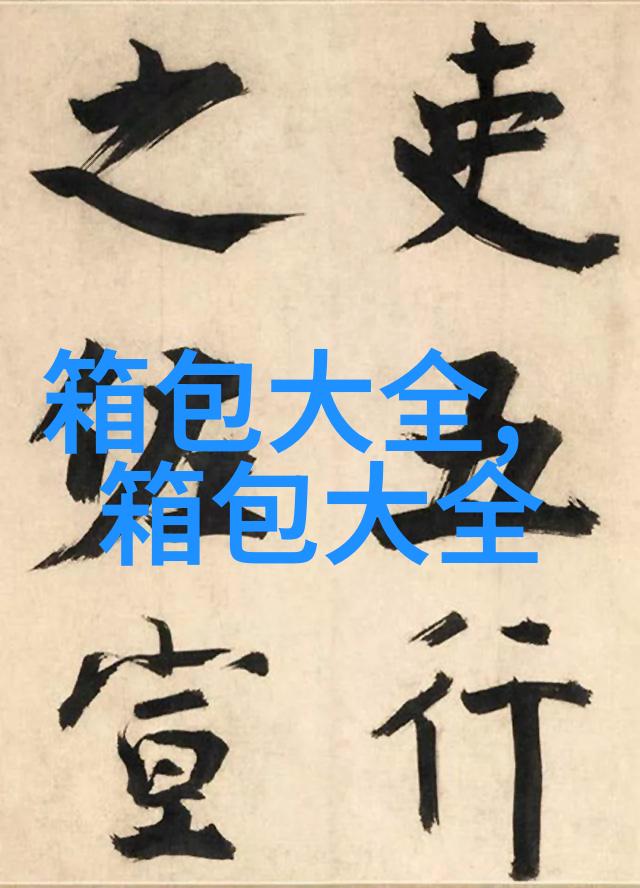 箱包大全,
箱包大全
吏五行
之宣